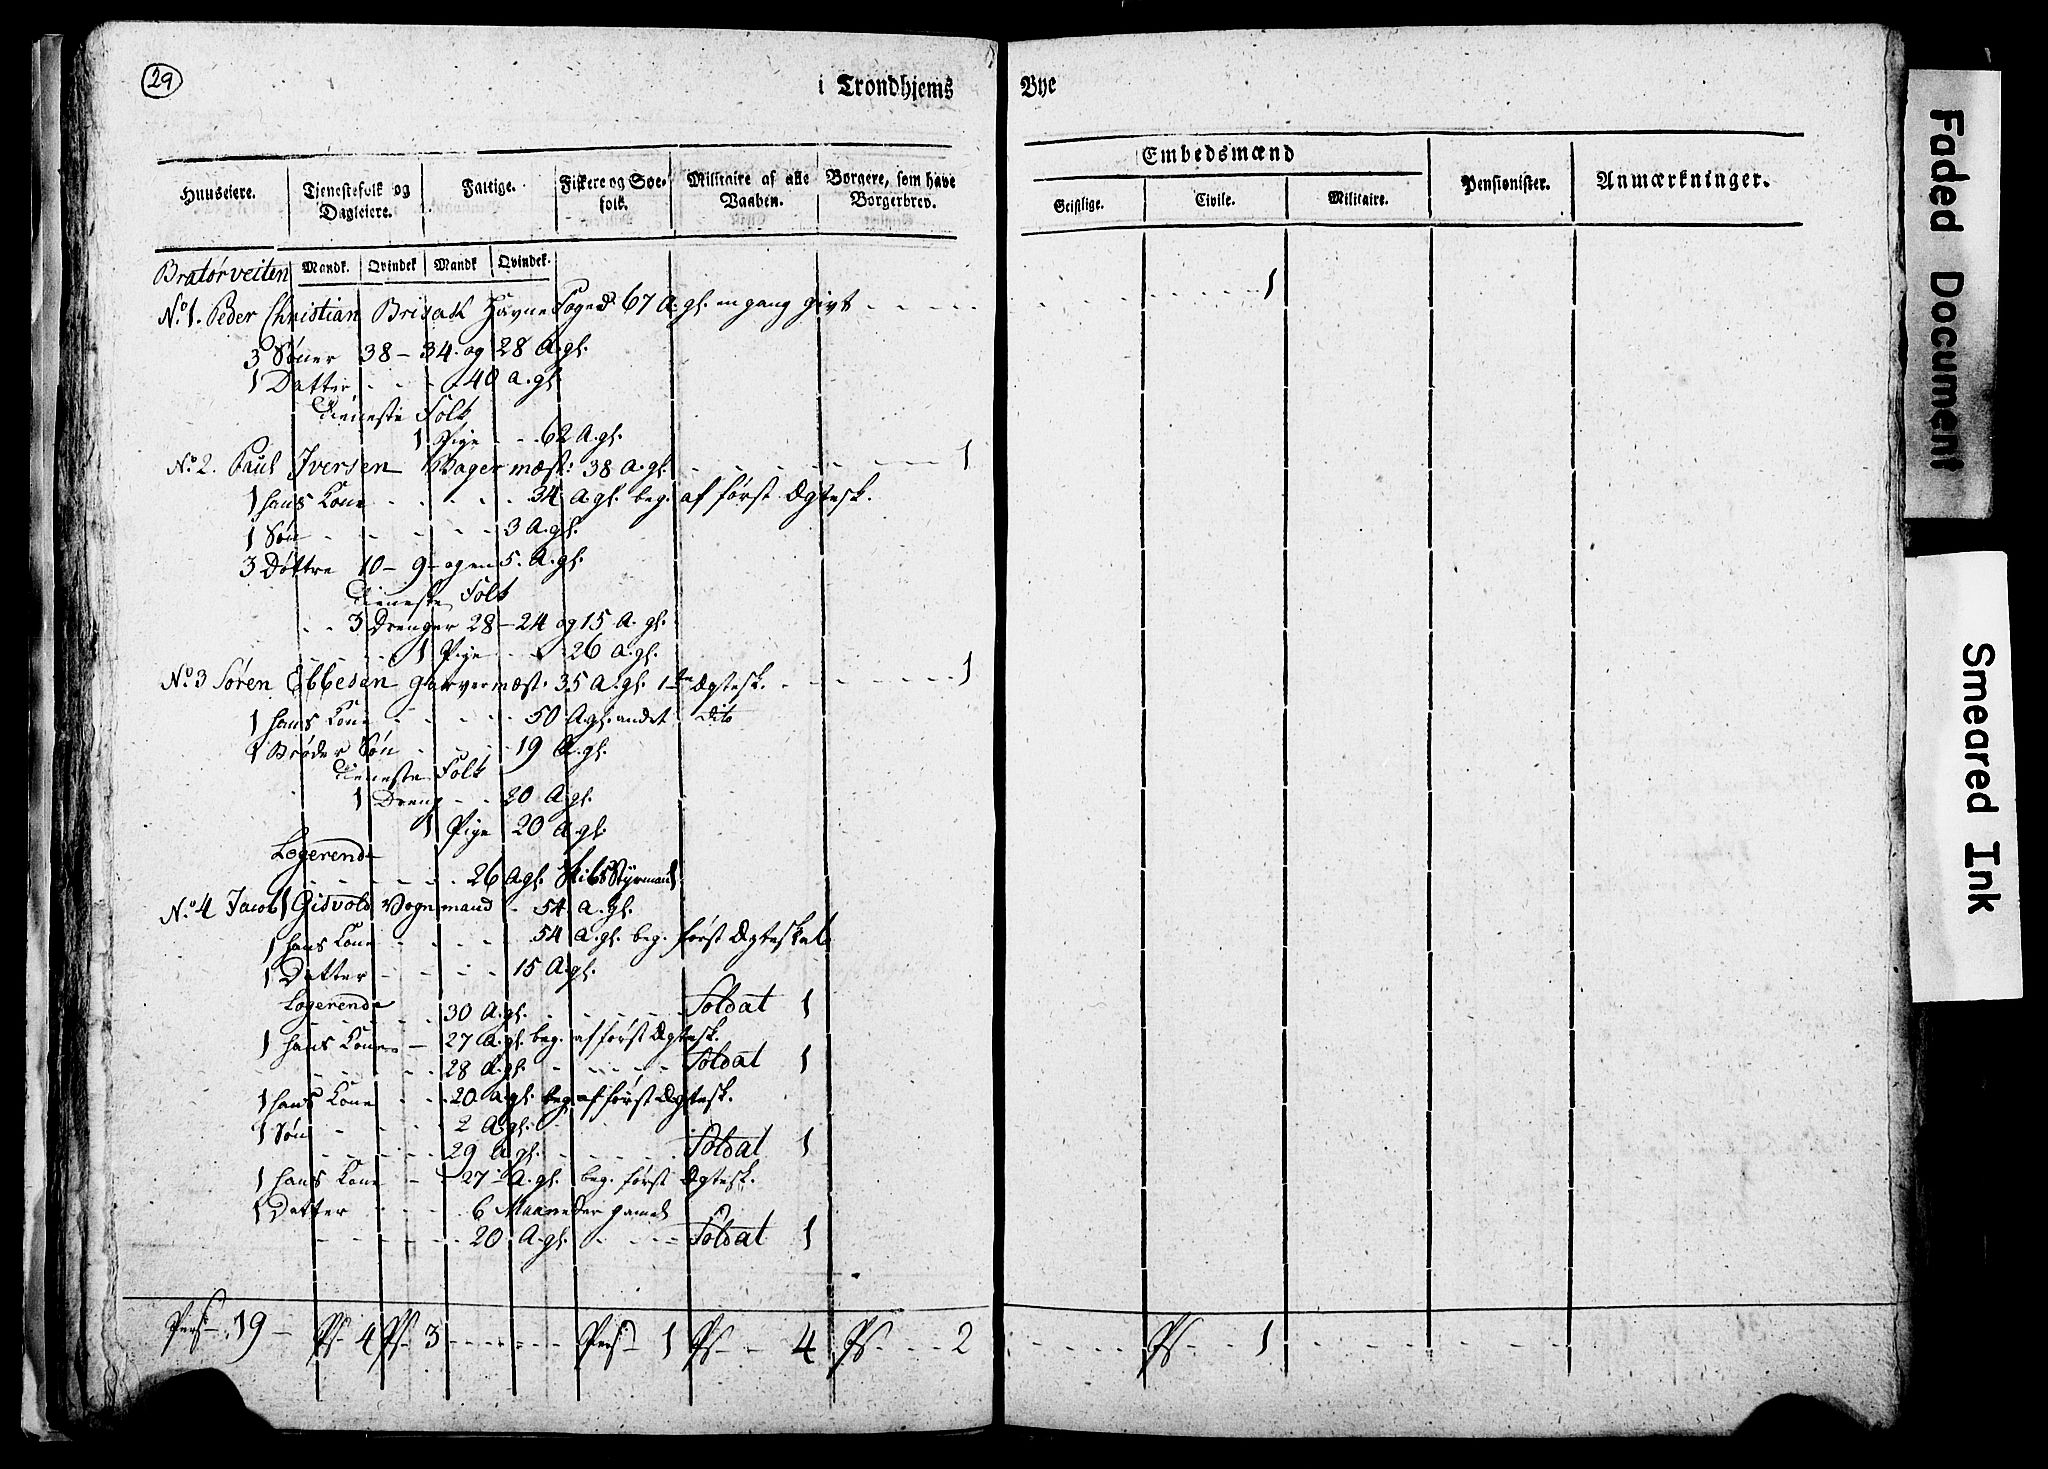 29
i Trondhjems Bye
Huuseiere. Tjenestefolk og Dagleiere. Fattige. Fiskere og Søe-folk. Militaire af alle Vaaben. Borgere, som have Borgerbrev. Embedsmænd Geistlige. Civile. Militaire. Pensionister. Anmærkninger.
Mandk. Qvindek Mandk Qvindek.
Bratørveiten
No. 1. Peder Christian Brisack Havne Foged 67 A. gl. en gang givt - - - - 1
3 Søner 38 - 34 - og 28 A. gl.
1 Datter - - - 40 a. gl.
Tieneste Folk
1 Pige - - 62 A. gl.
No. 2. Paul Iversen Bager mæst: 38 A. gl. - - - - 1
1 hans Kone - - - - 34 A. gl. beg. af først Ægtesk.
1 Søn - - - - 3 A. gl.
3 Døttre 10 - 9 - og en 5. A. gl.
Tieneste Folk
- - 3 Drenger 28 - 24 og 15 A. gl.
1 Pige - - 26 A. gl.
No. 3 Søren Ebbesen Garver mæst. 35 A. gl. 1te Ægtesk. - - - - 1
1 hans Kone - - - - 50 A. gl. andet dito
1 Broder Søn - - - 19 A. gl.
Tieneste Folk
1 Dreng - - 20 A. gl.
1 Pige 20 A. gl.
Logerende
- - - - 26 A. gl. Skibs Styrmand 1
No. 4 Jacob Gisvold Vognmand - 54 A. gl.
1 hans Kone - - - - 54 A. gl. beg. først Ægteskab
1 Datter - - - - 15 A. gl.
Logerende
- - - - 30 A. gl. - - - - Soldat 1
1 hans Kone - 27 A. gl. beg. af først Ægtesk.
- - - - 28 A. gl. - - - - Soldat 1
1 hans Kone - - 20 A. gl. beg. af først Ægtesk.
1 Søn - - - - 2 A. gl.
- - - - 29 A. gl. - - - - Soldat 1
1 hans Kone - 27 A. gl. beg. først Ægtesk.
1 Datter - - - - 6 Maaneder gamel
- - - - 20 A. gl. - - - Soldat 1
Pers. 19 - Ps - 4 Ps - 3 - - - - Pers - 1 Ps - 4 Ps - - 2 - - - - Ps - - 1 - - - -
Faded Document
Smeared Ink